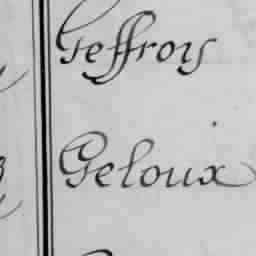 Geffroy
Geloux